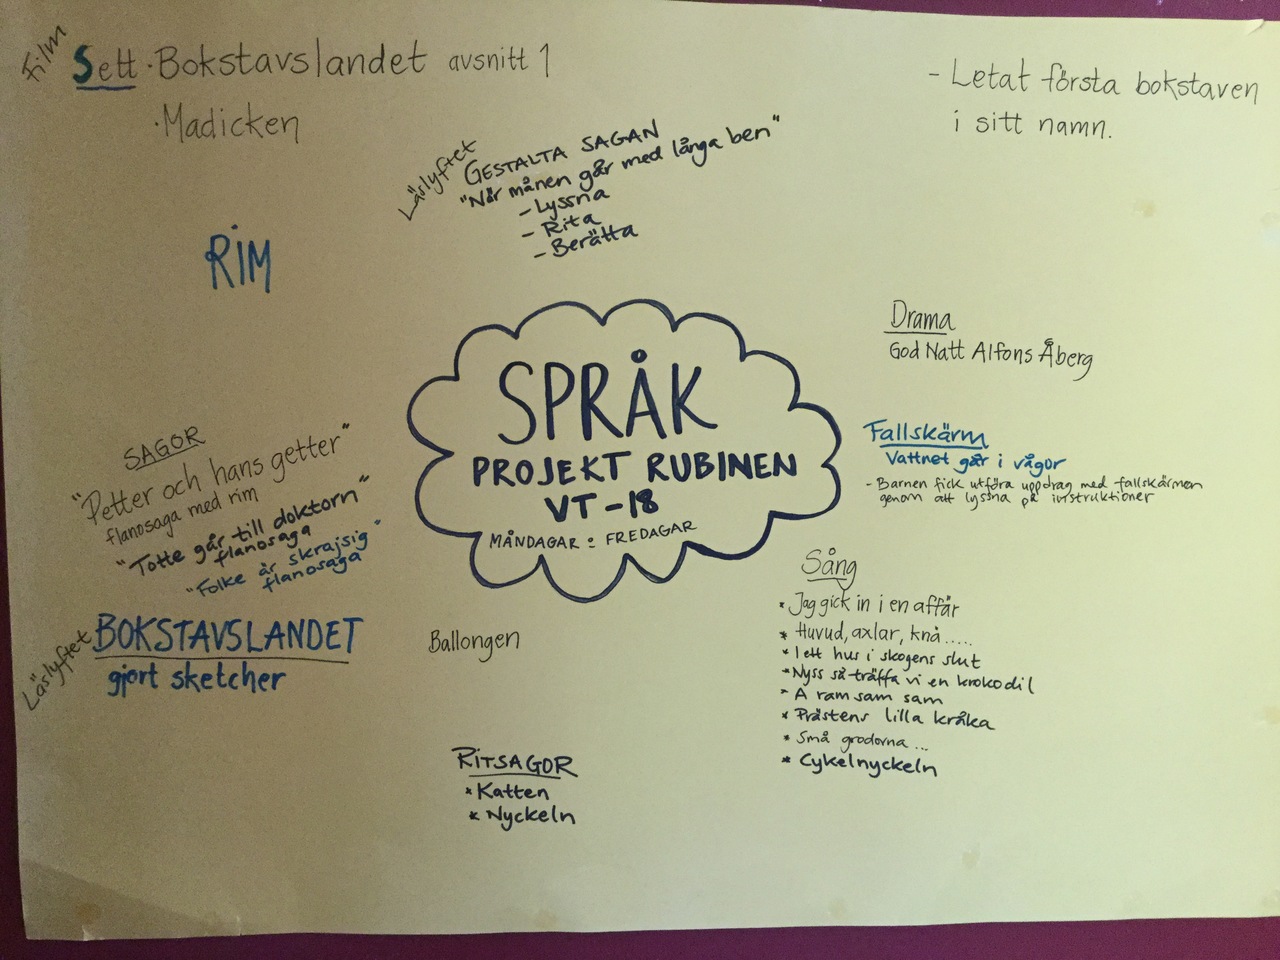 Film
Sett · Bokstavslandet avsnitt 1
· Madicken
- Letat första bokstaven
i sitt namn.
Läslyftet
GESTALTA SAGAN
"När månen går med långa ben"
- Lyssna
- Rita
- Berätta
RIM
Drama
God Natt Alfons Åberg
SPRÅK
PROJEKT RUBINEN
VT-18
MÅNDAGAR o FREDAGAR
Fallskärm
Vattnet går i vågor
- Barnen fick utföra uppdrag med fallskärmen
genom att lyssna på instruktioner
SAGOR
"Petter och hans getter"
flanosaga med rim
"Totte går till doktorn"
flanosaga
"Folke är skrajsig"
flanosaga
Läslyftet
BOKSTAVSLANDET
gjort sketcher
Ballongen
Sång
* Jag gick in i en affär
* Huvud, axlar, knä.....
* I ett hus i skogens slut
* Nyss så träffa vi en krokodil
* A ram sam sam
* Prästens lilla kråka
* Små grodorna...
* Cykelnyckeln
RITSAGOR
* Katten
* Nyckeln